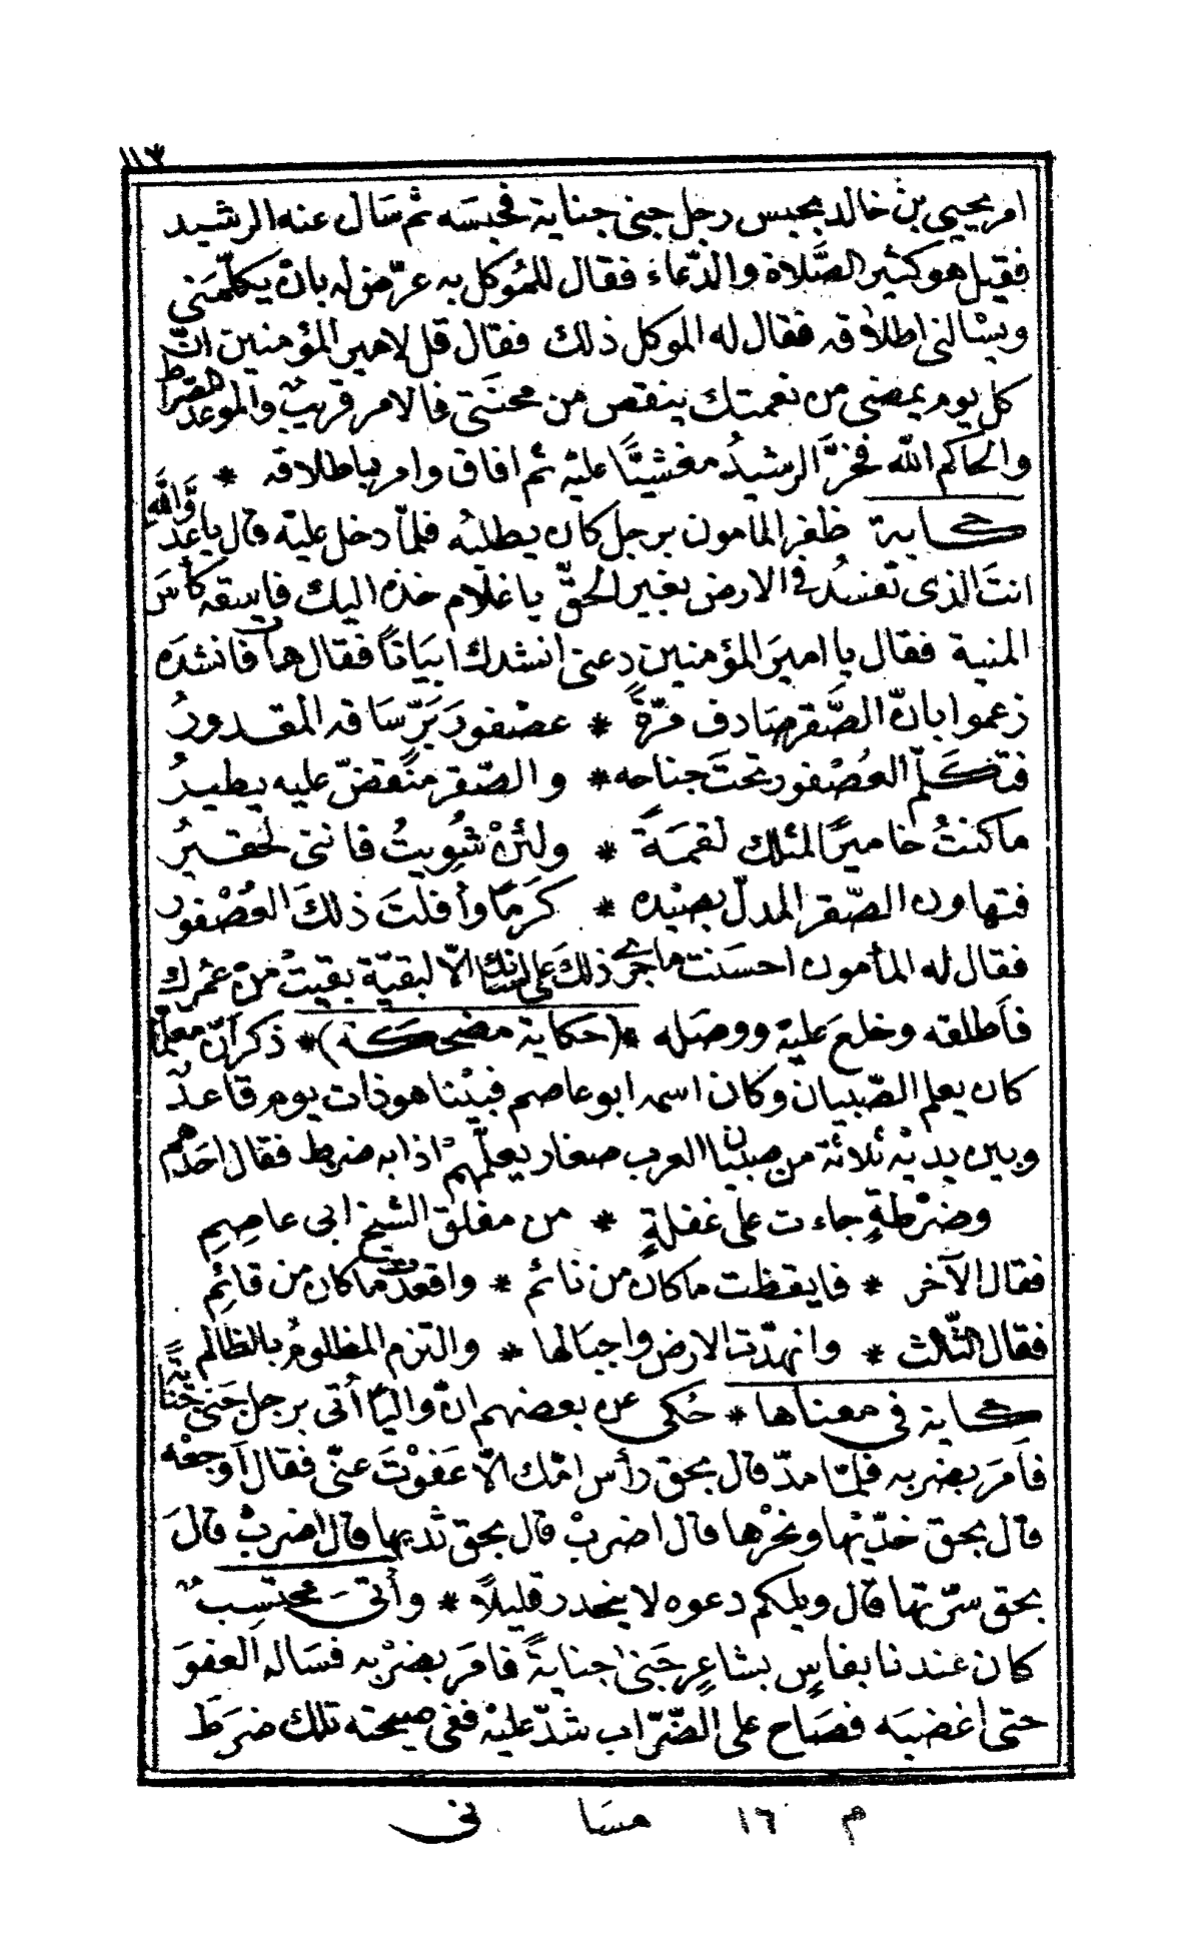 امر يحيى بن خالد بحبس رجل جنى جناية فحبسَه ثم سَال عنه الرشيد
فقيل هو كثير الصَّلاة والدّعاء فقال للمُوكل به عرّض له بانْ يكلّمَنى
ويسْالنى اطلاقه فقال له الموكل ذلك فقال قل لامير المؤمنين انّ
كل يوم يمضى من نعمتك ينقص من محنَتى فالامر قريبٌ والموعد الصّراط
والحاكم الله فخرَّ الرشيدُ مغشيًّا عليْه ثم افاق وامر باطلاقه *
حكاية ظفر المامون برجل كان يطلبُه فلمّا دخل عليْه قال يا عدوَّ الله
انتَ الذى تفسُد فى الارض بغير الحقّ يا غلام خذه اليك فاسقه كأسَ
المنية فقال يا اميرَ المؤمنين دعنى انشدك ابيَاتًا فقال هات فانشدَه
زعموا بانّ الصَّقر صَادف مرّةً * عصْفورَ بَرّ سَاقه المقدورُ
فتكَلّم العُصْفور تحتَ جناحه * والصّقر منْقضّ عليه يطيرُ
ما كنتُ خاميرًا لمثلك لقمَةً * ولئنْ شُوِيتُ فاننى لحقيرُ
فتهاون الصّقر المدلّ بصيْده * كرَمًا وأفلتَ ذلكَ العُصْفور
فقال له المأمون احسَنت ما جرى ذلكَ على لسَانك الّا لبقيّة بقيتْ منْ عمُرك
فأطلقه وخلعَ عليْه ووصَله *(حكاية مضحكة)* ذكر أنّ معلّما
كان يعلم الصّبيان وكان اسمه ابو عاصم فبيْنا هو ذات يوم قاعدٌ
وبين يديْه ثلاثة من صبيان العرب صغار يعلّمهم اذا به ضرط فقال احَدهم
وضرْطةٍ جاءت على غفلةٍ * من مفلق الشيخ ابى عاصِمِ
فقال الآخر * فايقظت ما كان من نائم * واقعدَت ما كان من قائِمِ
فقال الثّالث * وانهدّت الارض واجبَالها * والتزم المظلومُ بالظالم
حكاية فى معناها * حُكى عن بعضهم انّ واليًا أتى برجل جَنى جنايَةً
فأمَرَ بضربه فلمّا مدّ قال بحق رأس امّك الّا عَفوْتَ عنّى فقال أوجعْه
قال بحق خدّيْها ونحْرها قال اضربْ قال بحق ثدييها قال اضربْ قالَ
بحق سرّتها قال ويلكم دعوه لا ينحدر قليلًا * وأتى محتسِبٌ
كان عندنا بفاسٍ بشاعِرٍ جَنى جنايةً فامَر بضرْبه فسَاله العفوَ
حتى اغضبَه فصَاح على الضّرّاب شدّ عليْه ففى صيحته تلك ضرَطَ
م ١٦ مسَا نى